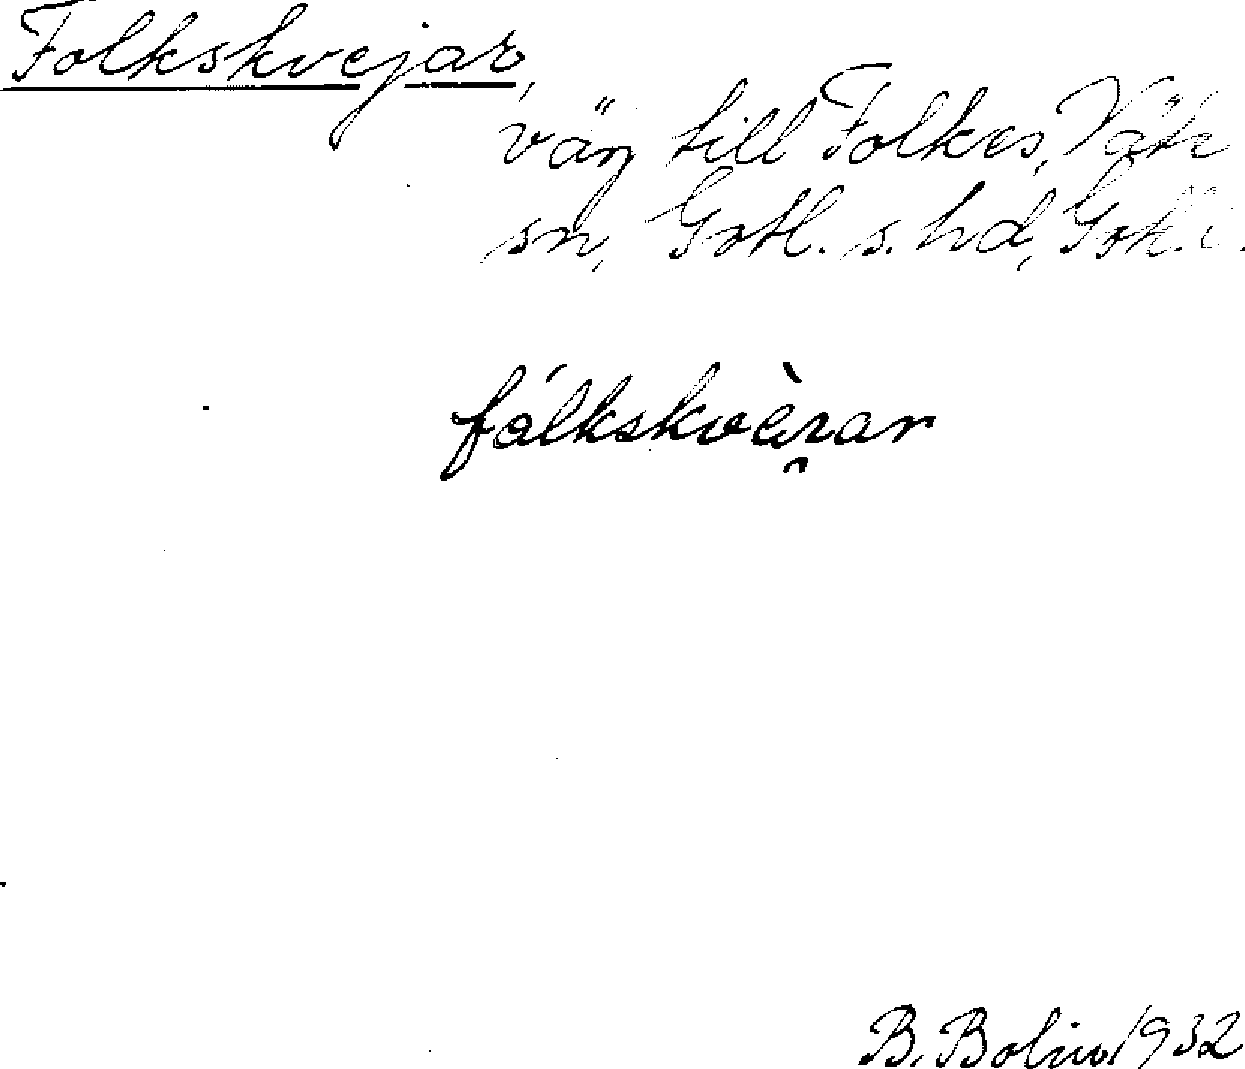 Folkskvejar,
väg till Folkes, Väte
sn, Gotl. s. hd, Gotl. l.
fólkskvèi̯ar
B. Bolin 1932